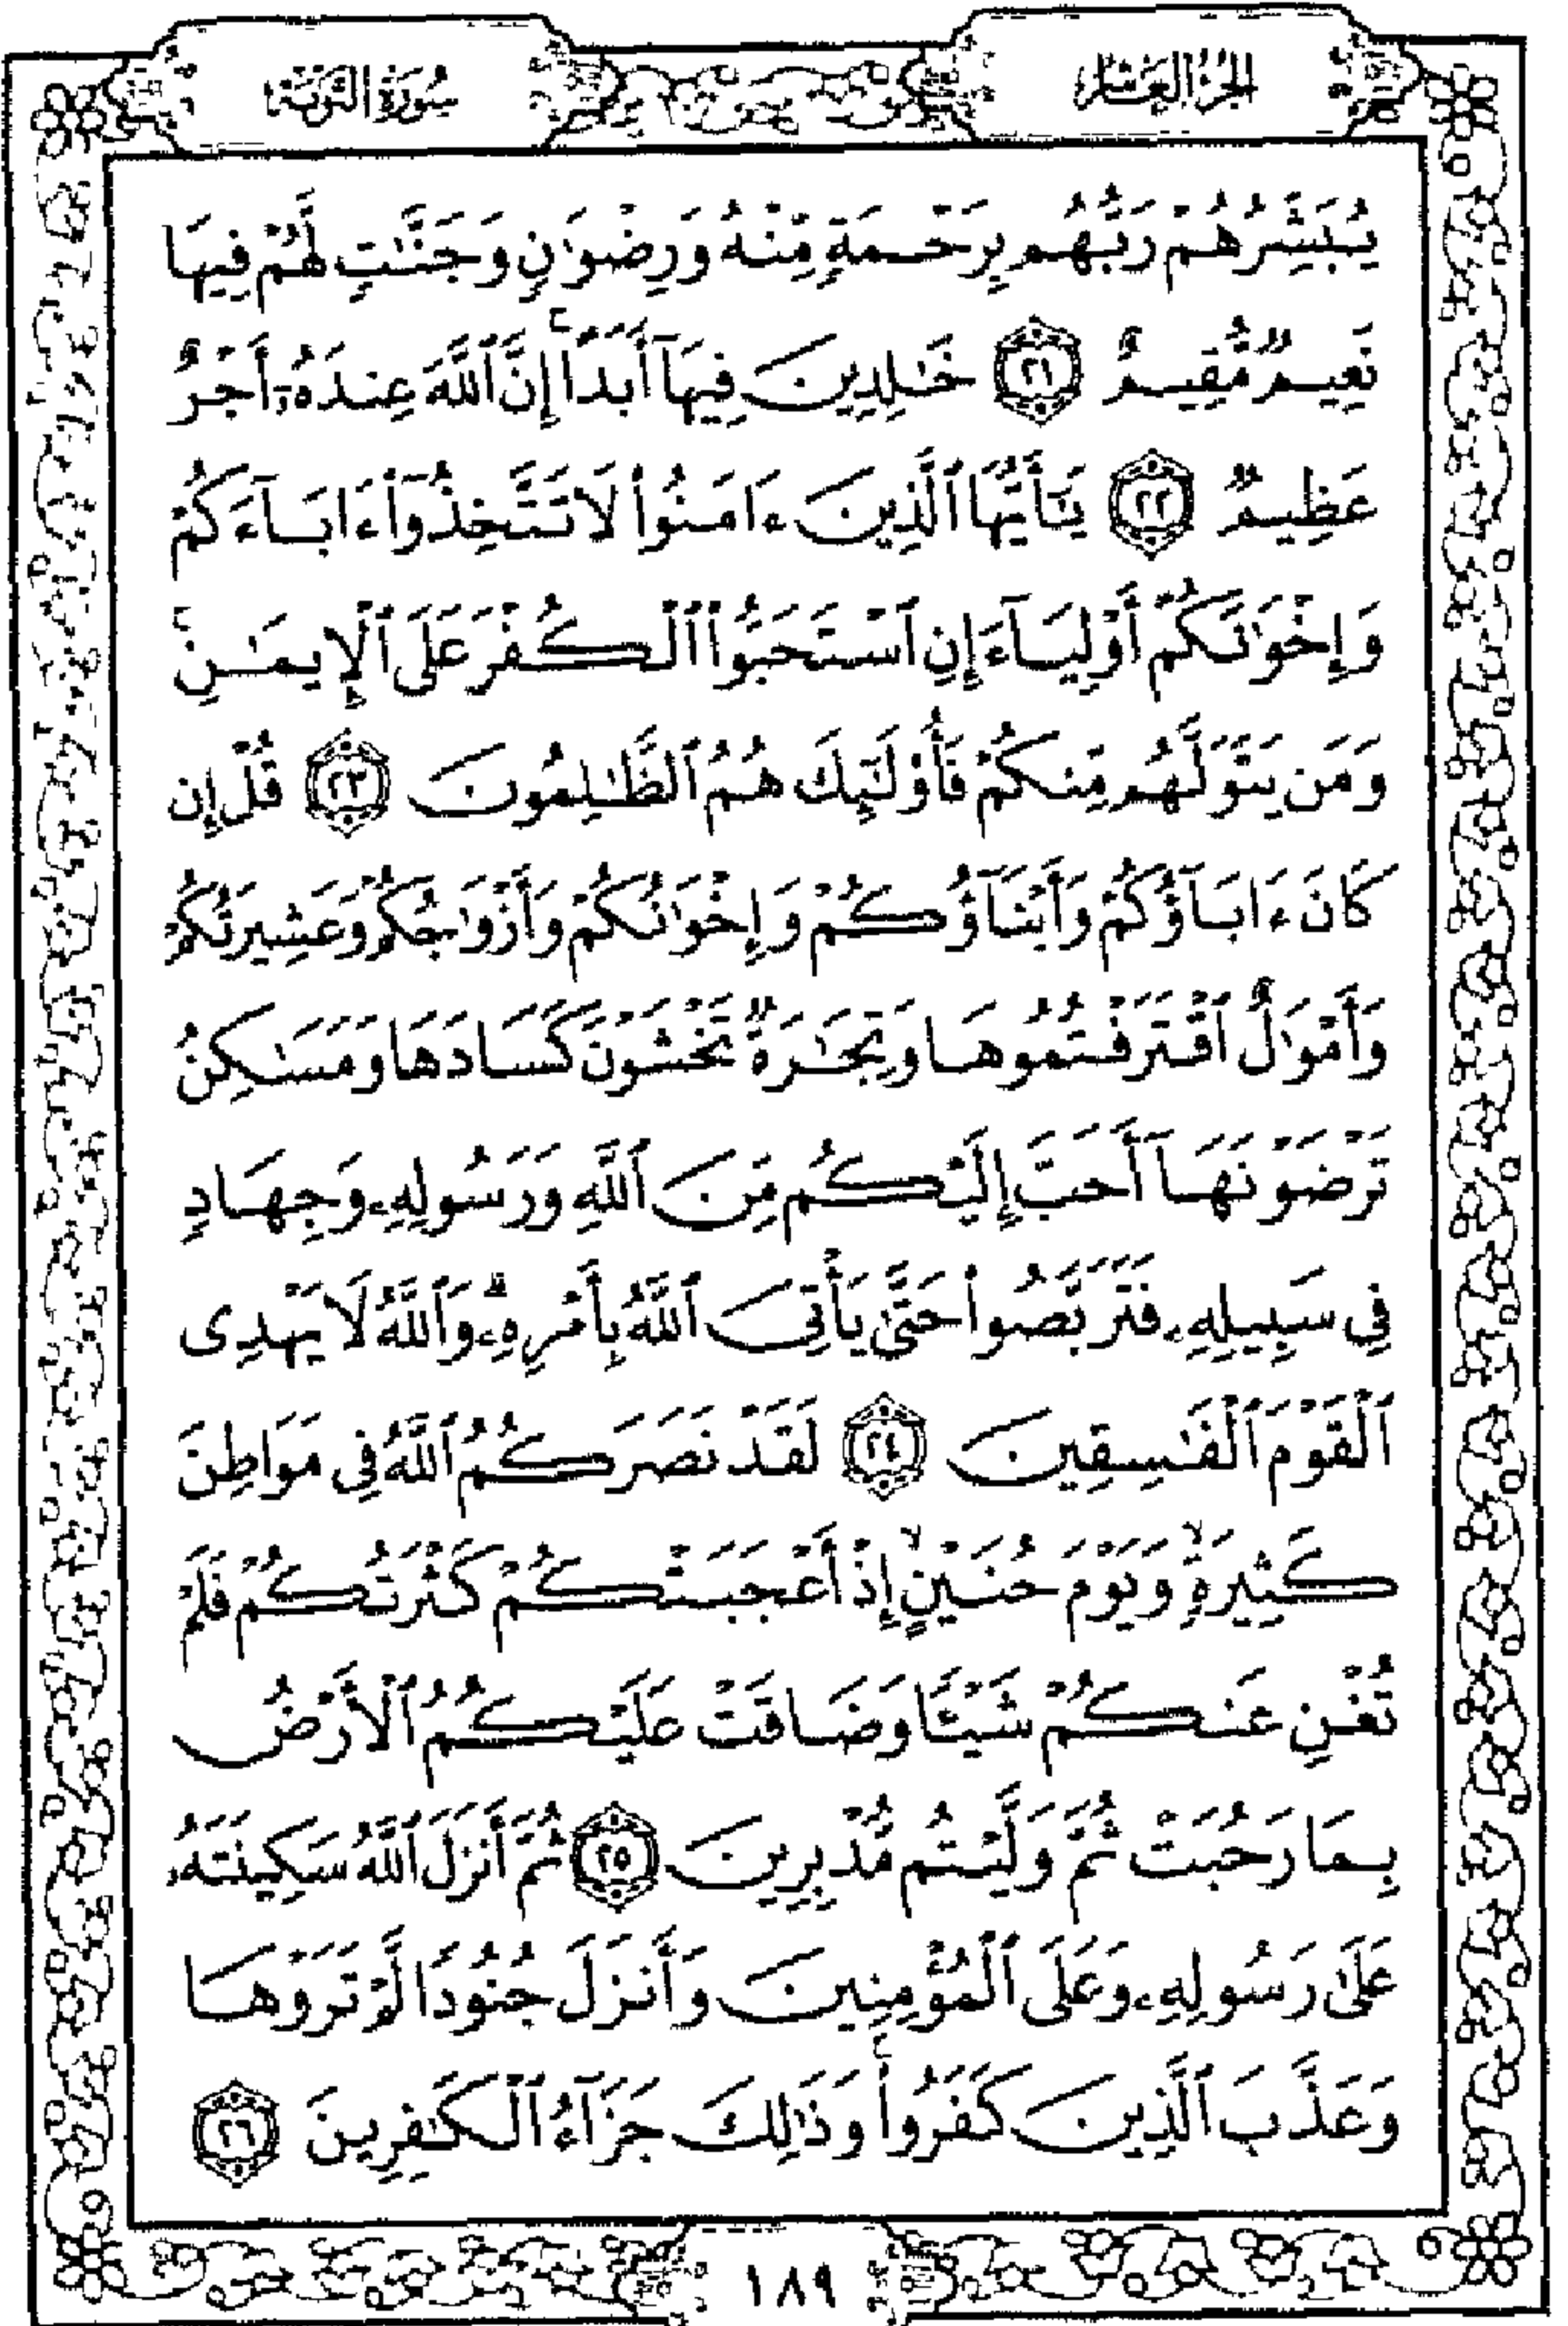 الجزء العاشر
سورة التوبة
يُبَشِّرُهُمْ رَبُّهُم بِرَحْمَةٍ مِّنْهُ وَرِضْوَٰنٍ وَجَنَّٰتٍ لَّهُمْ فِيهَا
نَعِيمٌ مُّقِيمٌ ٢١ خَٰلِدِينَ فِيهَآ أَبَدًا ۚ إِنَّ ٱللَّهَ عِندَهُۥٓ أَجْرٌ
عَظِيمٌ ٢٢ يَٰٓأَيُّهَا ٱلَّذِينَ ءَامَنُوا۟ لَا تَتَّخِذُوٓا۟ ءَابَآءَكُمْ
وَإِخْوَٰنَكُمْ أَوْلِيَآءَ إِنِ ٱسْتَحَبُّوا۟ ٱلْكُفْرَ عَلَى ٱلْإِيمَٰنِ ۚ
وَمَن يَتَوَلَّهُم مِّنكُمْ فَأُو۟لَٰٓئِكَ هُمُ ٱلظَّٰلِمُونَ ٢٣ قُلْ إِن
كَانَ ءَابَآؤُكُمْ وَأَبْنَآؤُكُمْ وَإِخْوَٰنُكُمْ وَأَزْوَٰجُكُمْ وَعَشِيرَتُكُمْ
وَأَمْوَٰلٌ ٱقْتَرَفْتُمُوهَا وَتِجَٰرَةٌ تَخْشَوْنَ كَسَادَهَا وَمَسَٰكِنُ
تَرْضَوْنَهَآ أَحَبَّ إِلَيْكُم مِّنَ ٱللَّهِ وَرَسُولِهِۦ وَجِهَادٍ
فِى سَبِيلِهِۦ فَتَرَبَّصُوا۟ حَتَّىٰ يَأْتِىَ ٱللَّهُ بِأَمْرِهِۦ ۗ وَٱللَّهُ لَا يَهْدِى
ٱلْقَوْمَ ٱلْفَٰسِقِينَ ٢٤ لَقَدْ نَصَرَكُمُ ٱللَّهُ فِى مَوَاطِنَ
كَثِيرَةٍ ۙ وَيَوْمَ حُنَيْنٍ ۙ إِذْ أَعْجَبَتْكُمْ كَثْرَتُكُمْ فَلَمْ
تُغْنِ عَنكُمْ شَيْـًٔا وَضَاقَتْ عَلَيْكُمُ ٱلْأَرْضُ
بِمَا رَحُبَتْ ثُمَّ وَلَّيْتُم مُّدْبِرِينَ ٢٥ ثُمَّ أَنزَلَ ٱللَّهُ سَكِينَتَهُۥ
عَلَىٰ رَسُولِهِۦ وَعَلَى ٱلْمُؤْمِنِينَ وَأَنزَلَ جُنُودًا لَّمْ تَرَوْهَا
وَعَذَّبَ ٱلَّذِينَ كَفَرُوا۟ ۚ وَذَٰلِكَ جَزَآءُ ٱلْكَٰفِرِينَ ٢٦
١٨٩